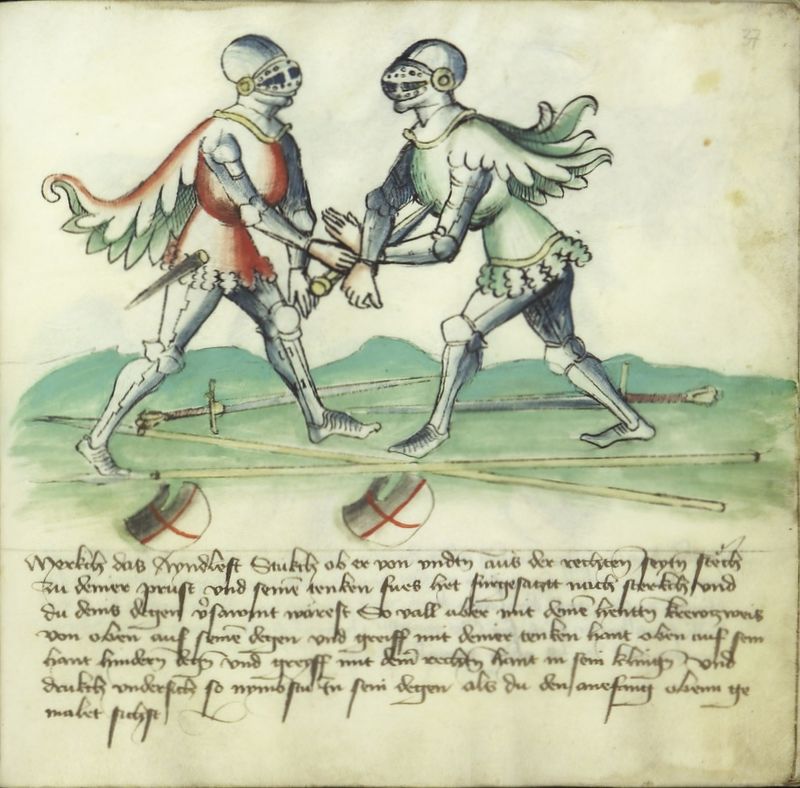 37
Merckh das Ayndleft Stuckh ob er von vndtñ aus der rechten seytn stech
zu deiner prust vnd seinē tenken fues het fürgesatzt nach sterckh vnd
du deins degen v̈sawmt warest So vall aber mit deinē hentten krewtzweis
von obenn auf seinē degen vnd greiff mit deiner tenken hant oben auf sein
hant hindern degn̄ vnd greyff mit deinr̄ rechten hant in sein klingn̄ vnd
drukch vndersich so nymbstu Im sein degen als du den anefang obenn ge
malet sichst